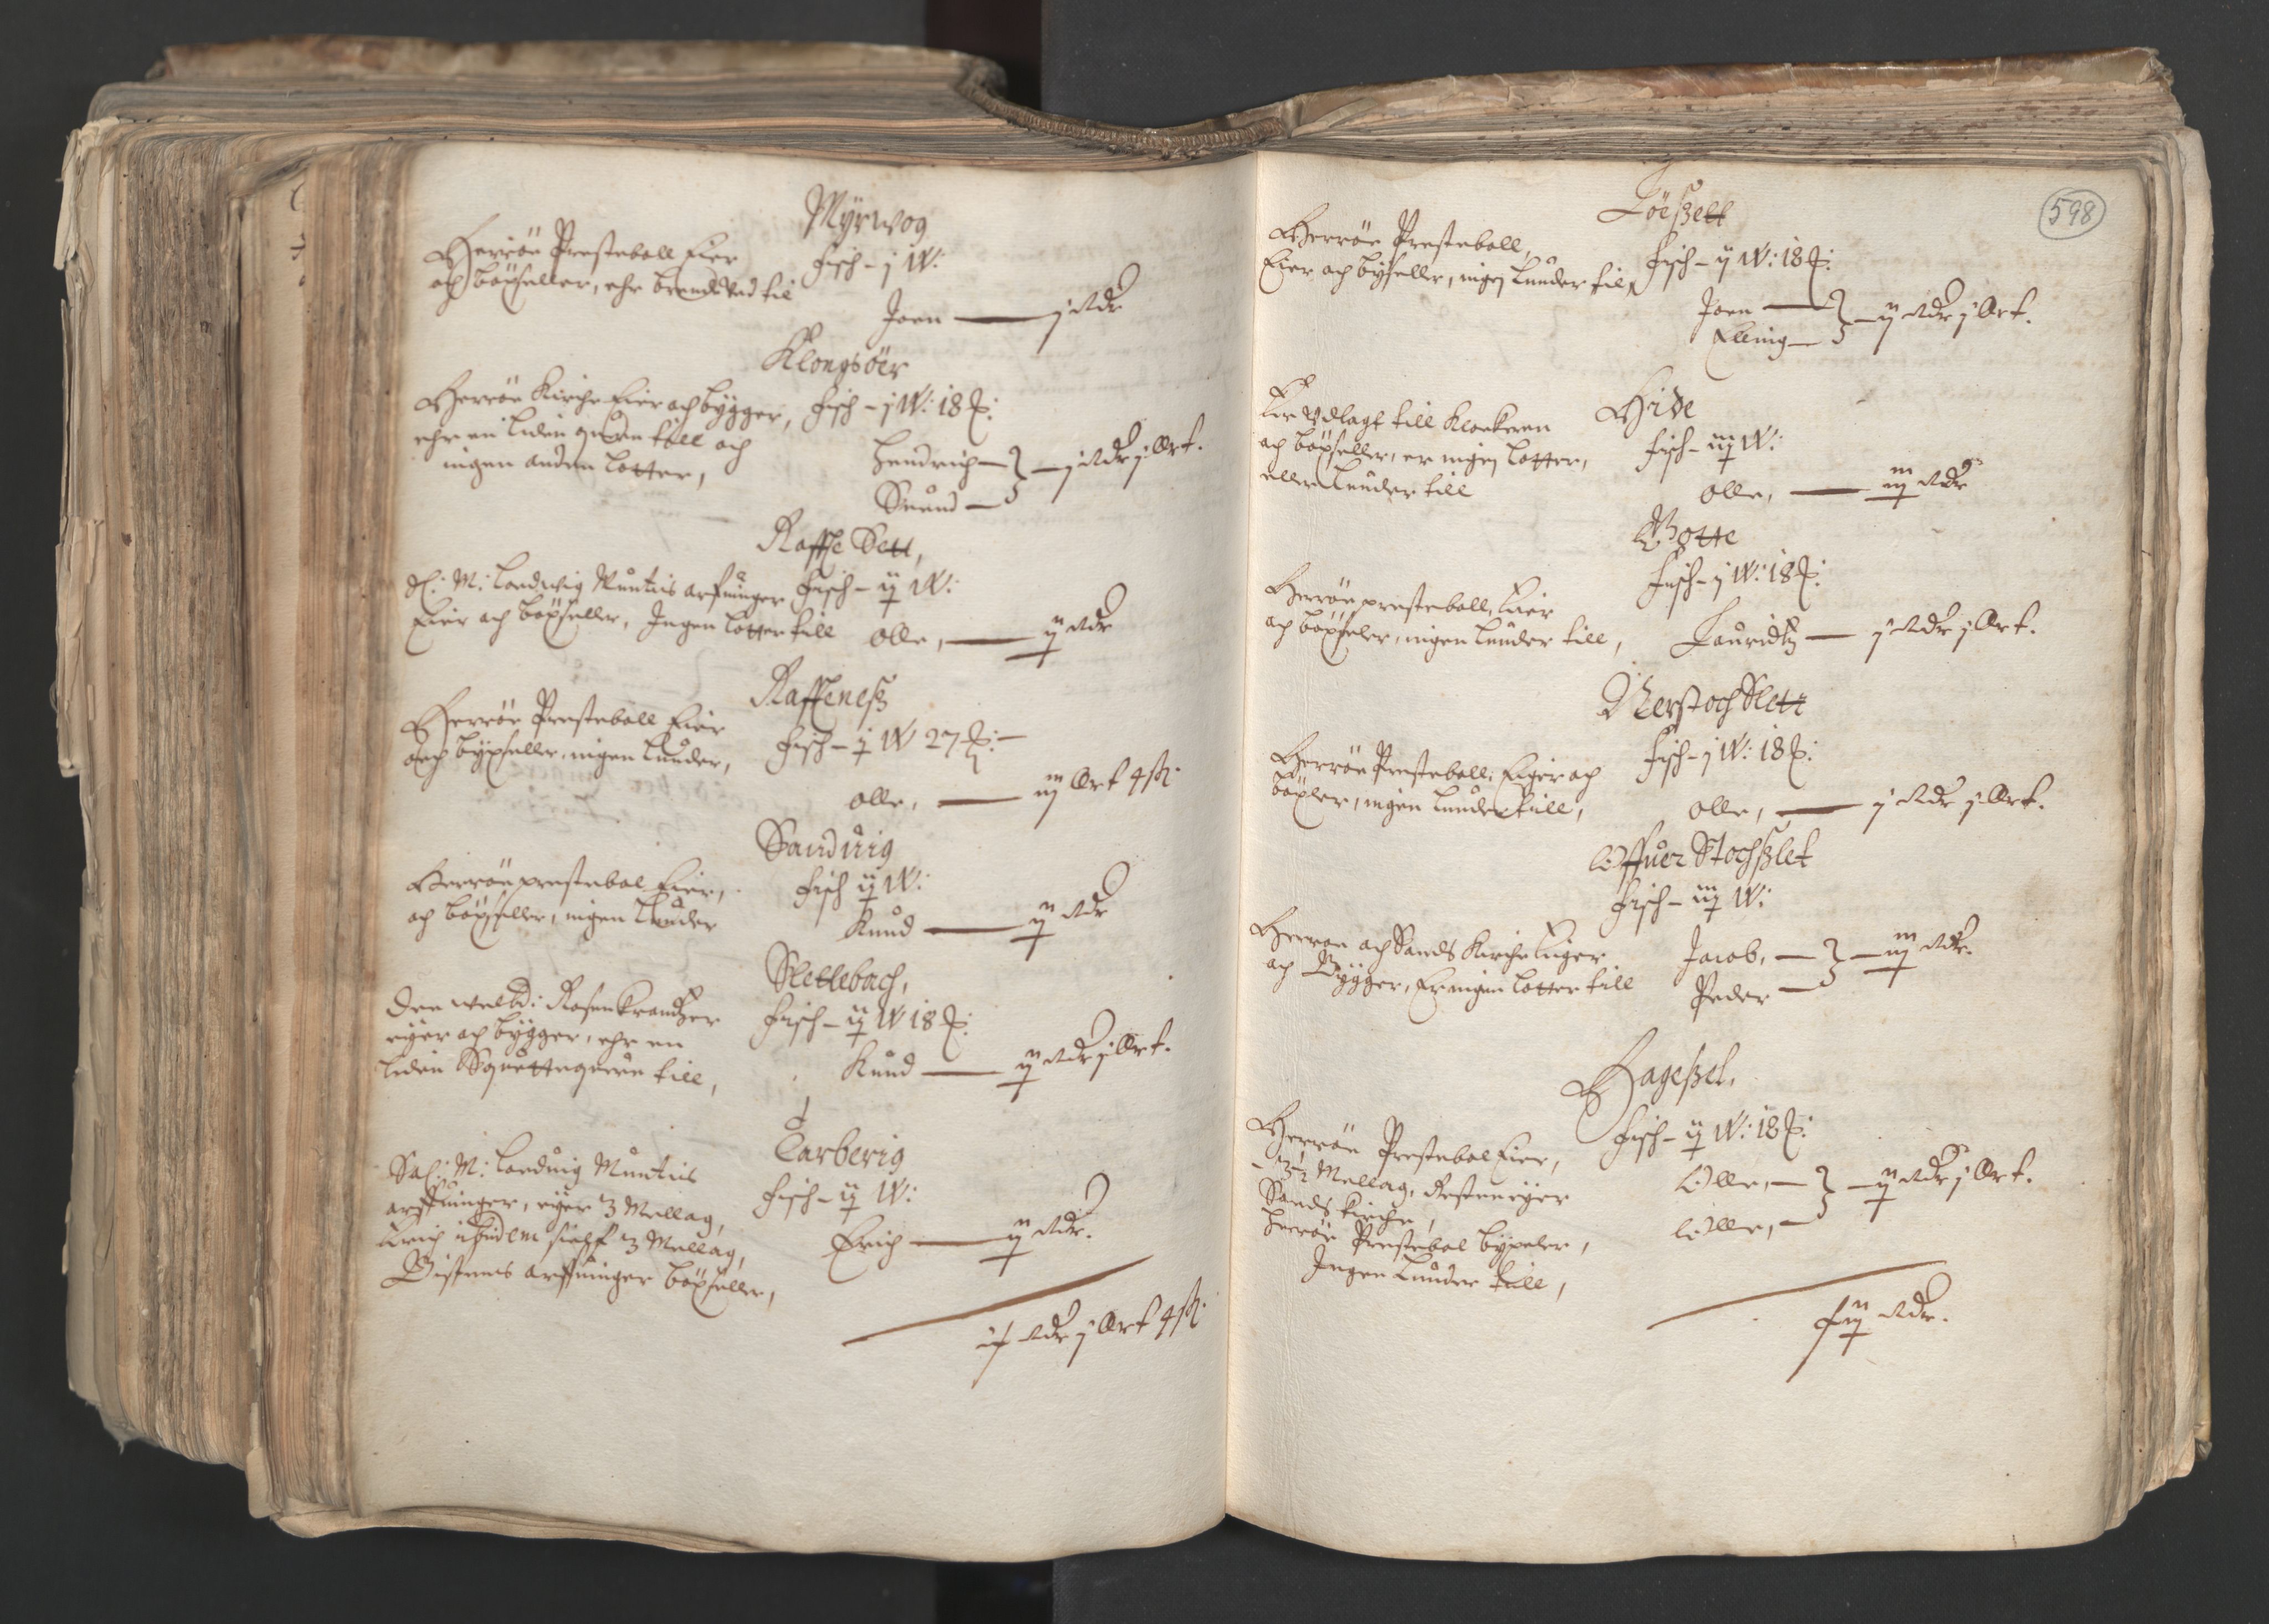 Myrwog
Herröe Presteboll Eier
och böxseller, ehr brendeVed til
Fisch - j W:
Joen — j Rdr
Klongsöer
Herröe Kirche Eier och bygger,
ehr en liden quern till och
ingen anden lotter,
Fisch - j W: 18 ℔:
Hendrich —
Suend —
j Rdr j Ort.
Raffle Sett,
Sl: M: Lordwig Muntiis arfuinger
Eier och böxseller, Ingen lotter till
Fisch - ij W:
Olle, — ij Rdr
Raffleneß
Herröe Presteboll Eier
och byxseller, ingen lunder,
Fisch - j W 27 ℔: —
Olle, — iij Ort 4 ß.
Sanduig
Herröe prestebol Eier,
och böxseller, ingen lunder
Fisch ij W:
Knud — ij Rdr
Slettebach,
Den welbd: Rosenkrandzer
eyer och bygger, ehr en
liden Squettequern till,
Fisch - ij W 18 ℔:
Knud — ij Rdr j Ort.
Tarberig
Sal: M: Lorduig Muntiis
arffuinger, eyer 3 Mellag,
Erich ibidem sielff 3 Mellag,
arffuinger böxseller,
Fisch - ij W:
Erich — ij Rdr.
Rdr j Ort 4 ß.
598
Löeßett
Herröe Presteboll,
Eier och byxseller, ingen lunder till
Fisch - ij W: 18 ℔:
Joen —
Elling —
ij Rdr j Ort.
Hide
Er Vdlagt till Klockeren
och böxseller, er ingen lotter,
eller lunder till
Fisch - iij W:
Olle, — iij Rdr
Botte
Herröe presteboll, Eier
och böxseler, ingen lunder till,
Fisch - j W: 18 ℔:
Lauridtz — j Rdr j Ort.
Nerstoch Slett
Herröe Presteboll, Eyer och
böxler, ingen lunder till,
Fisch - j W: 18 ℔:
Olle, — j Rdr j Ort.
Offuer Stochßlet
Fisch - iij W:
Herröe och Sands Kirche Eiger
och Bygger, Er ingen lotter till
Jacob, —
Peder —
iij Rdr.
Hageßet,
Herröe Prestebol Eier,
Mellag, Resten eyer
Sands Kirche,
Herröe Prestebol byxeler,
Ingen lunder till,
Fisch - ij W: 18 ℔:
Olle, —
Olle, —
ij Rdr j Ort.
Rdr.